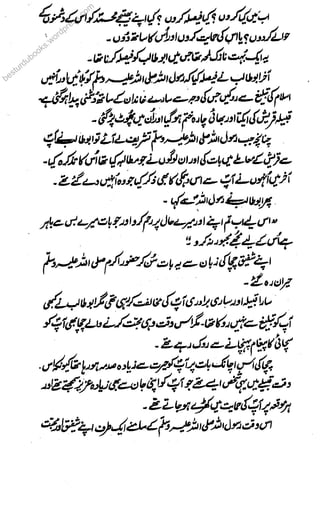 اب میں کیا کروں؟ کیا فیصلہ کروں؟ کیا اپنے بھتیجے محمد کو اس کے دشمنوں کے
حوالے کر دوں؟ یا اس کی حمایت کروں اور اس کا ساتھ دوں۔
یہ ایک بہت نازک لمحہ تھا جس میں ابو طالب کو فیصلہ کرنا تھا۔
آخر ابو طالب نے فیصلہ کیا کہ رسول اللہ صلی اللہ علیہ وسلم کو بلائیں اور انہیں
اسلام کی تبلیغ سے روکیں جس کی وجہ سے سارے خاندان کے ساتھ دشمنی پیدا ہو گئی ہے
قبیلہ قریش کی ایکتا اور بھائی چارہ ختم ہو گیا اور ان میں پھوٹ پڑ گئی۔
چنانچہ جب رسول اللہ صلی اللہ علیہ وسلم تشریف لے آئے تو ابو طالب نے آپ
سے قریش کے معاملے میں بات کی اور ان لوگوں نے جو مطالبہ کیا تھا اس کا تذکرہ کیا۔
آخر میں انہوں نے آپ سے اس دھمکی کا بھی ذکر کیا جو وہ انہیں دے گئے تھے۔
پھر ابو طالب نے رسول اللہ سے کہا۔
"اس لیے اب تم اپنے اور میرے حال پر رحم کرو اور جو بات میرے بس سے باہر
ہے اس کے لیے مجھے مجبور نہ کرو"
اپنے شفیق چچا کی زبان سے یہ بات سن کر حضور اکرم صلی اللہ علیہ وسلم
حیران رہ گئے۔
سارا قبیلہ اور ساری برادری آپ کی مخالفت کر رہی تھی مگر ابو طالب نے کبھی
آپ کو تبلیغ سے نہیں روکا تھا۔ مگر اس وقت وہی محبت کرنے والے چچا بھی آپ کو
سچائی کا پیغام پہنچانے سے روک رہے تھے۔
چچا کی اس اچانک بات پر آپ کو حیرت سے زیادہ صدمہ ہو رہا تھا کیونکہ اس
وقت قبیلے میں یہی شخص ایسے تھے جو آپ کو اپنی جان سے بھی زیادہ عزیز سمجھتے تھے اور
ہر موقعہ پر آپ کی حمایت میں کھڑے ہو جاتے تھے۔
اس وقت رسول اللہ صلی اللہ علیہ وسلم کے سامنے ایک طرف اپنے شفیق اور محبت
besturdubooks.wordpress.com